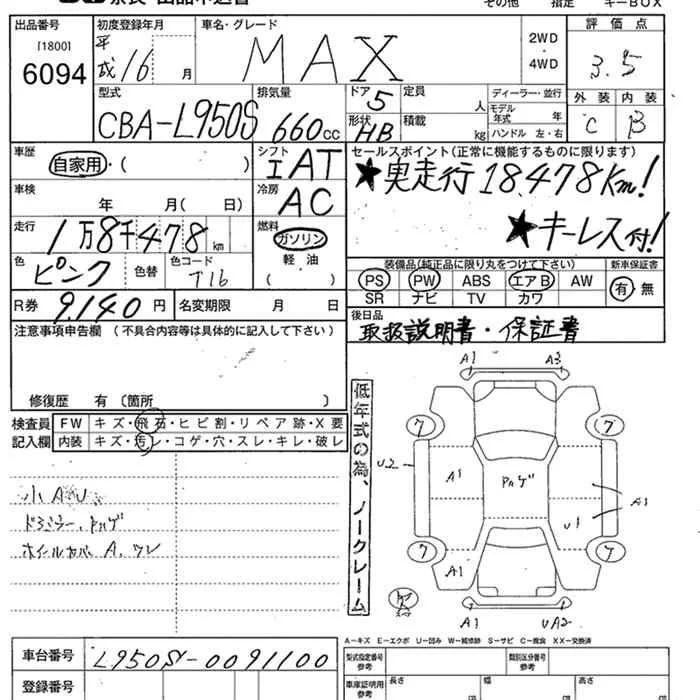 奈良 出品申込書
その他 指定 キーBOX
出品番号 初度登録年月 車名・グレード 評価点
[1800] 平成16 月 MAX 2WD ・ 4WD 3.5
6094
型式 排気量 ドア 定員 ディーラー・並行 外装 内装
CBA-L950S 660cc 5 人 モデル年式 年 C B
形状 積載 kg ハンドル 左・右
HB
車歴 シフト セールスポイント(正常に機能するものに限ります)
自家用・( ) IAT ★奥走行18.478Km!
車検 年 月( 日) 冷房 AC
走行 1万8千478km 燃料 ★キーレス付!
ガソリン
軽油
( )
色 ピンク 色替 色コード T16
装備品(純正品に限り丸をつけて下さい) 新車保証書
PS PW ABS エアB AW 有・無
SR ナビ TV カワ
R券 9.140円 名変期限 月 日
後日品
取扱説明書・保証書
注意事項申告欄 (不具合内容等は具体的に記入して下さい)
修復歴 有 〔箇所 〕
検査員 FW キズ・飛石・ヒビ割・リペア跡・X要
記入欄 内装 キズ・汚レ・コゲ・穴・スレ・キレ・破レ
小AU
ドアミラー、ハゲ
ホイールカバ A、ワレ
低年式の為、ノークレーム
A1 A3
ワ ワ
U2 A1 ハゲ A1
U1
ワ ワ
A1
A1 UA2
A-キズ E-エクボ U-凹み W-補修跡 S-サビ C-腐食 XX-交換済
車台番号 L950S-0091100
型式指定番号 参考 類別区分番号 参考
登録番号
車庫証明用 参考 長さ 幅 高さ